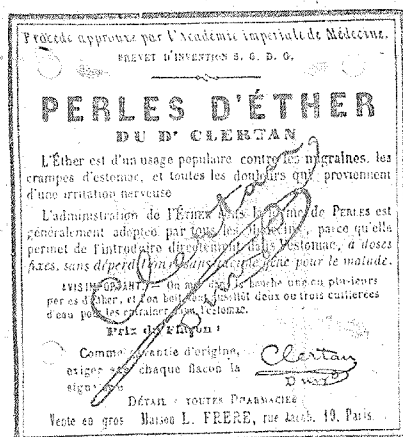 Procédé approuvé par l'Académie impériale de Médecine.
BREVET D'INVENTION S. G. D. G.
PERLES D'ÉTHER
DU Dr CLERTAN
L'Éther est d'un usage populaire contre les migraines, les
crampes d'estomac, et toutes les douleurs qui proviennent
d'une irritation nerveuse.
L'administration de l'ÉTHER sous la forme de PERLES est
généralement adoptée par tous les médecins, parce qu'elle
permet de l'introduire directement dans l'estomac, à doses
fixes, sans déperdition et sans gêne pour le malade.
AVIS IMPORTANT. On met dans la bouche une ou plusieurs
perles d'éther, et l'on boit aussitôt deux ou trois cuillerées
d'eau pour les entraîner dans l'estomac.
Prix du Flacon :
Comme garantie d'origine,
exiger sur chaque flacon la
signature
Clertan
DÉTAIL : TOUTES PHARMACIES
Vente en gros Maison L. FRERE, rue Jacob, 19, Paris.